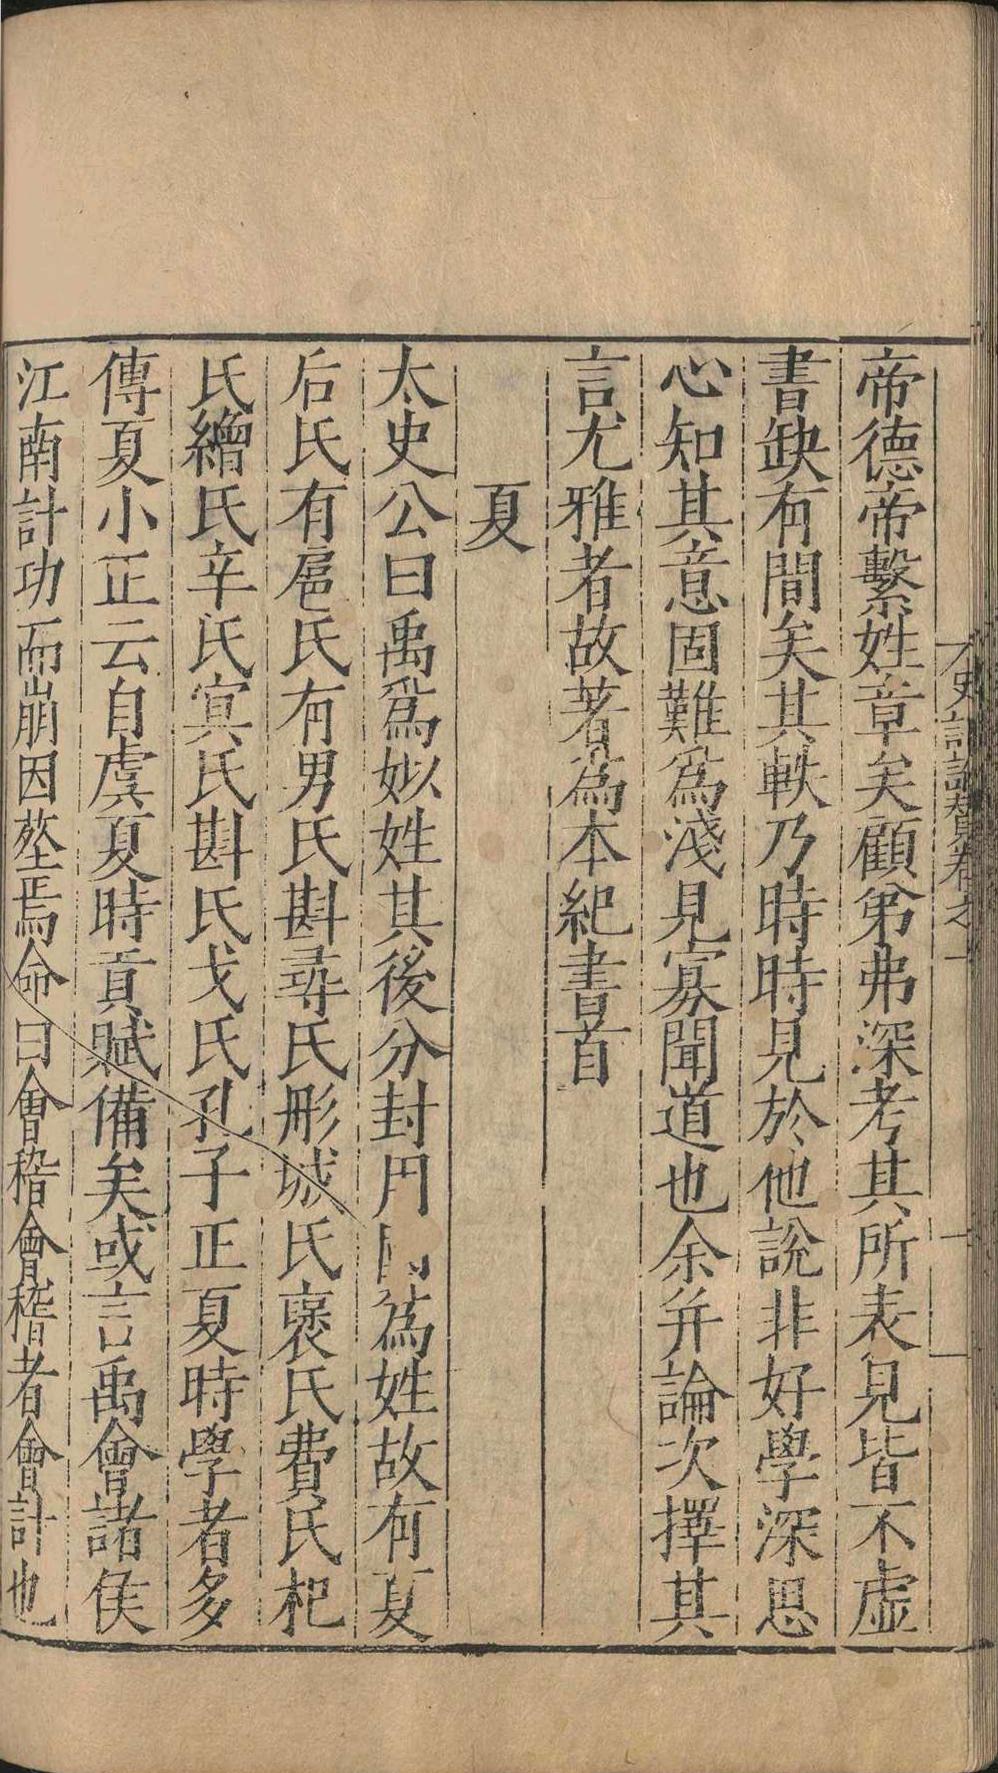 史記論贊卷之一
帝德帝繫姓章矣顧弟弗深考其所表見皆不虛
書缺有間矣其軼乃時時見於他說非好學深思
心知其意固難爲淺見寡聞道也余并論次擇其
言尤雅者故著爲本紀書首
夏
太史公曰禹爲姒姓其後分封用國爲姓故有夏
后氏有扈氏有男氏斟尋氏彤城氏褒氏費氏杞
氏繒氏辛氏冥氏斟氏戈氏孔子正夏時學者多
傳夏小正云自虞夏時貢賦備矣或言禹會諸侯
江南計功而崩因塟焉命曰會稽會稽者會計也